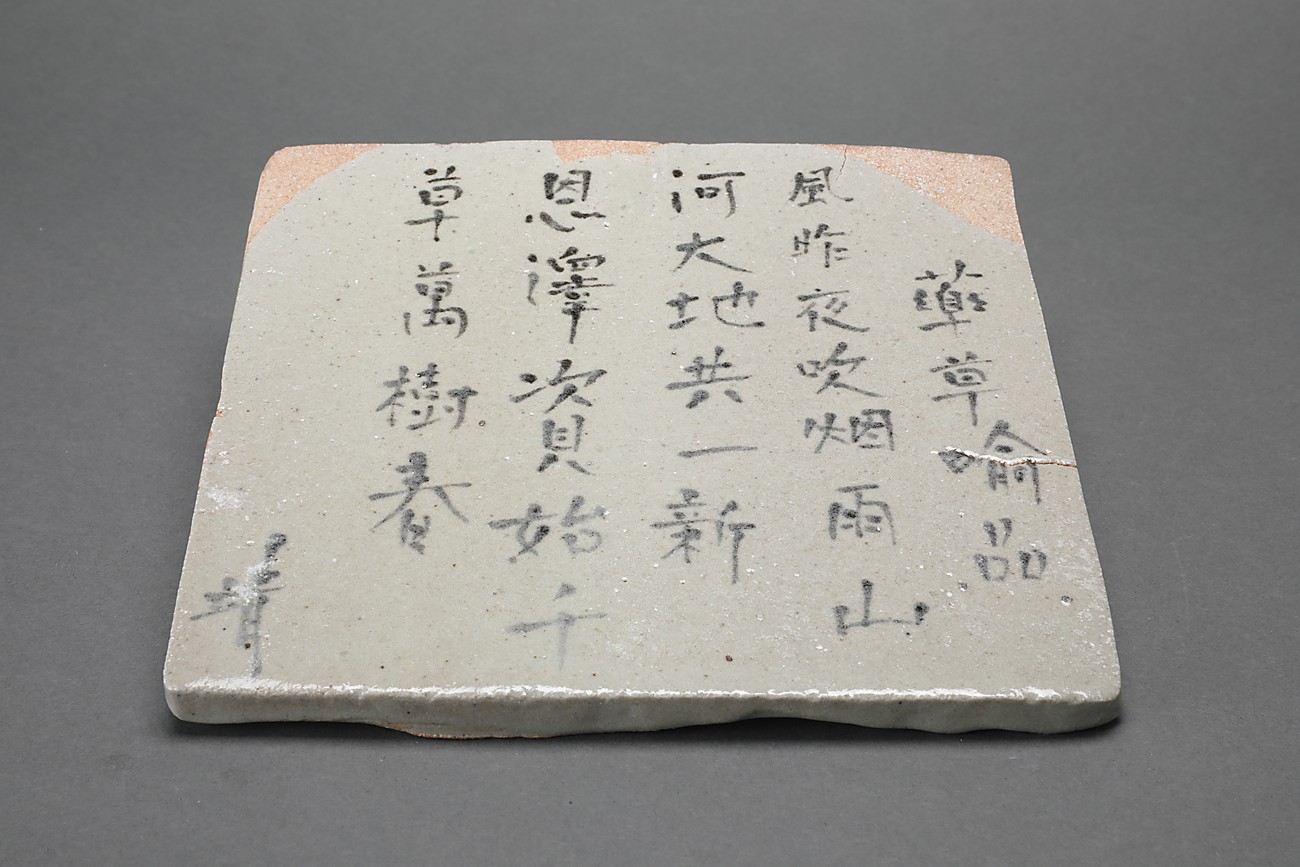 藥草喻品
風昨夜吹烟雨山
河大地共一新
恩澤資始千
草萬樹春
靖